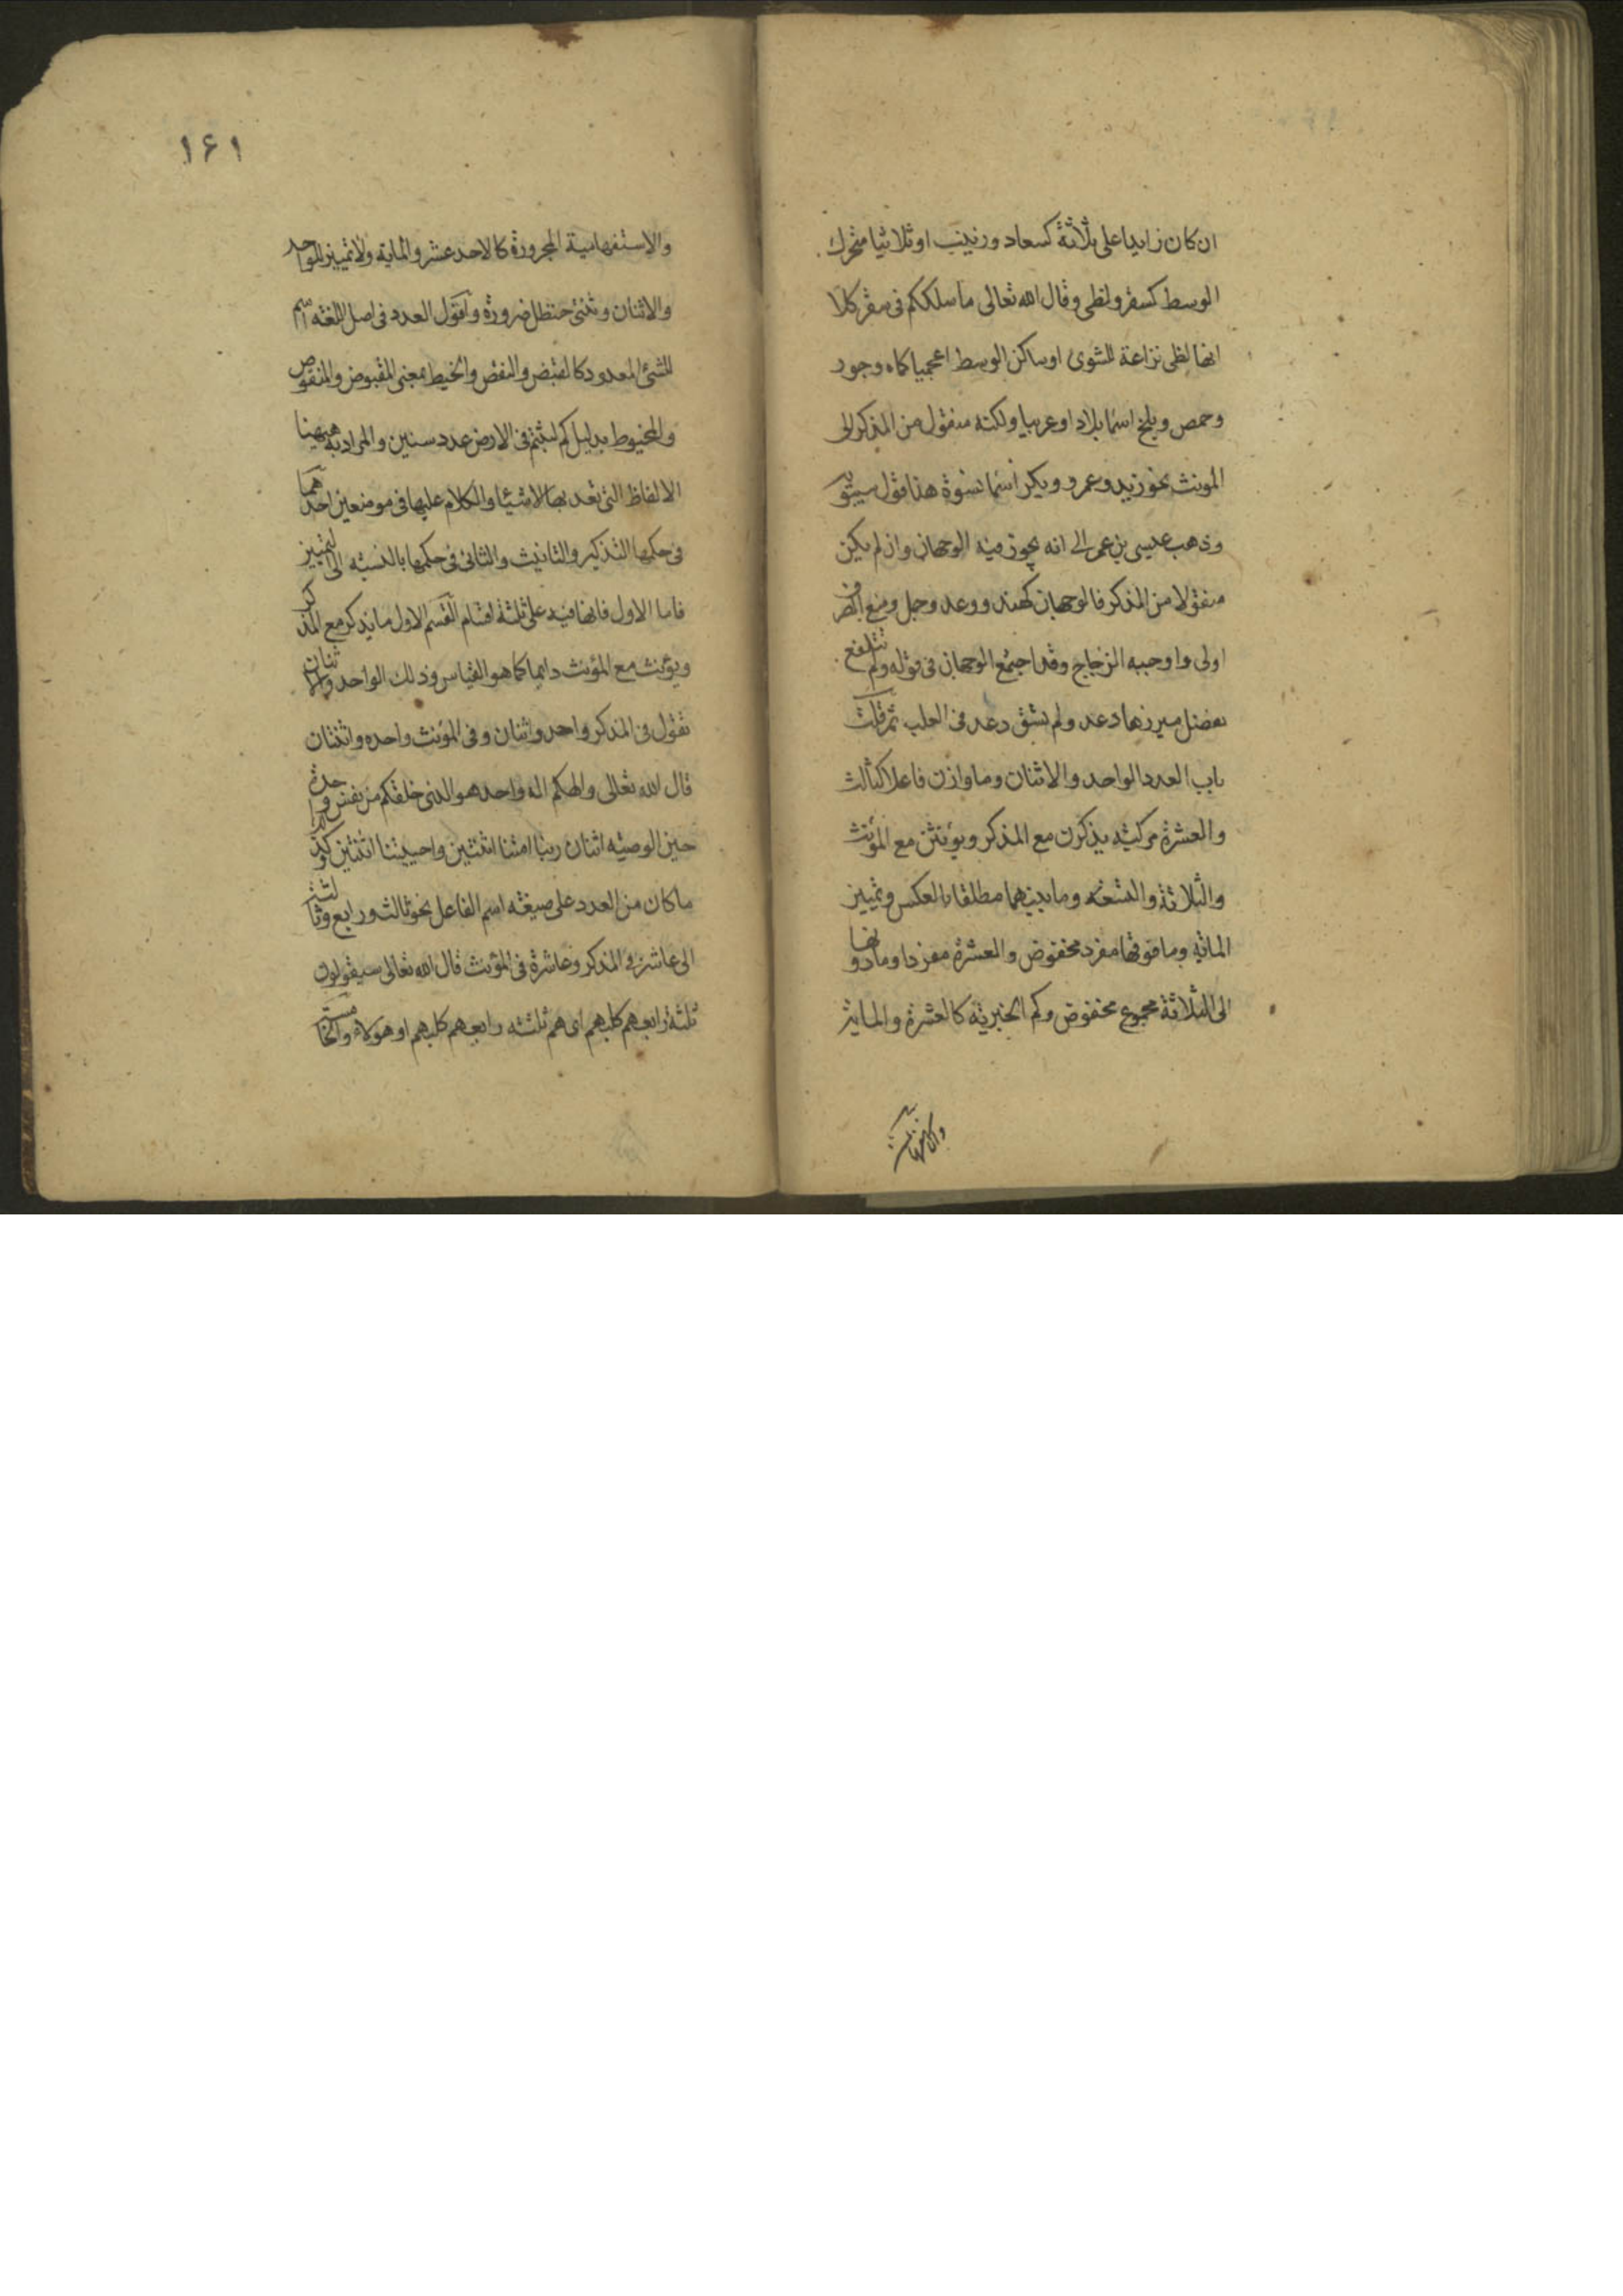 ان كان زايدا على ثلاثة كسعاد وزينب او ثلاثيا متحرك
الوسط كسقر ولظى وقال الله تعالى ما سلككم فى سقر كلا
انها لظى نزاعة للشوى او ساكن الوسط اعجميا كماه وجور
وحمص وبلخ اسما بلاد او عربيا ولكنه منقول من المذكر الى
المونث نحو زيد وعمرو وبكر اسما نسوة هذا قول سيبويه
وذهب عيسى بن عمر الى انه يجوز فيه الوجهان وان لم يكن
منقولا من المذكر فالوجهان كهند ودعد وجمل ومنع الصرف
اولى واوجبه الزجاج وقد اجتمع الوجهان فى قوله ولم تتلفع
بفضل ميزرها دعد ولم تسق دعد فى العلب ثم قلت
باب العدد الواحد والاثنان وما وازن فاعلا كثالث
والعشرة مركبة يذكرن مع المذكر ويؤنثن مع المؤنث
والثلاثة والتسعه وما بينهما مطلقا بالعكس وتمييز
المائة وما فوقها مفرد مخفوض والعشرة مفردا وما دونها
الى الثلاثة مجموع مخفوض وكم الخبرية كالعشرة والماية
والاستفهامية
١٤١
والاستفهامية المجرورة كالاحد عشر والماية ولا تمييز للواحد
والاثنان وثنتى حنظل ضرورة واقول العدد فى اصل اللغه اسم
للشئ المعدود كالقبض والنقض والخيط بمعنى المقبوض والمنقوض
والمخيوط بدليل كم لبثتم فى الارض عدد سنين والمراد به ههنا
الالفاظ التى تعد بها الاشيا والكلام عليها فى موضعين احدهما
فى حكمها التذكير والتانيث والثانى فى حكمها بالنسبة الى التمييز
فاما الاول فانها فيه على ثلثة اقسام القسم الاول ما يذكر مع المذكر
ويؤنث مع المؤنث دايما كما هو القياس وذلك الواحد والاثنان
تقول فى المذكر واحد واثنان وفى المؤنث واحده واثنتان
قال الله تعالى والهكم اله واحد هو الذى خلقكم من نفس واحدة
حين الوصيه اثنان ربنا امتنا اثنتين واحييتنا اثنتين وكذا
ما كان من العدد على صيغة اسم الفاعل نحو ثالث ورابع وثالثة
الى عاشر فى المذكر وعاشرة فى المؤنث قال الله تعالى سيقولون
ثلثة رابعهم كلبهم اى هم ثلثه رابعهم كلبهم او هولاء والخامسة